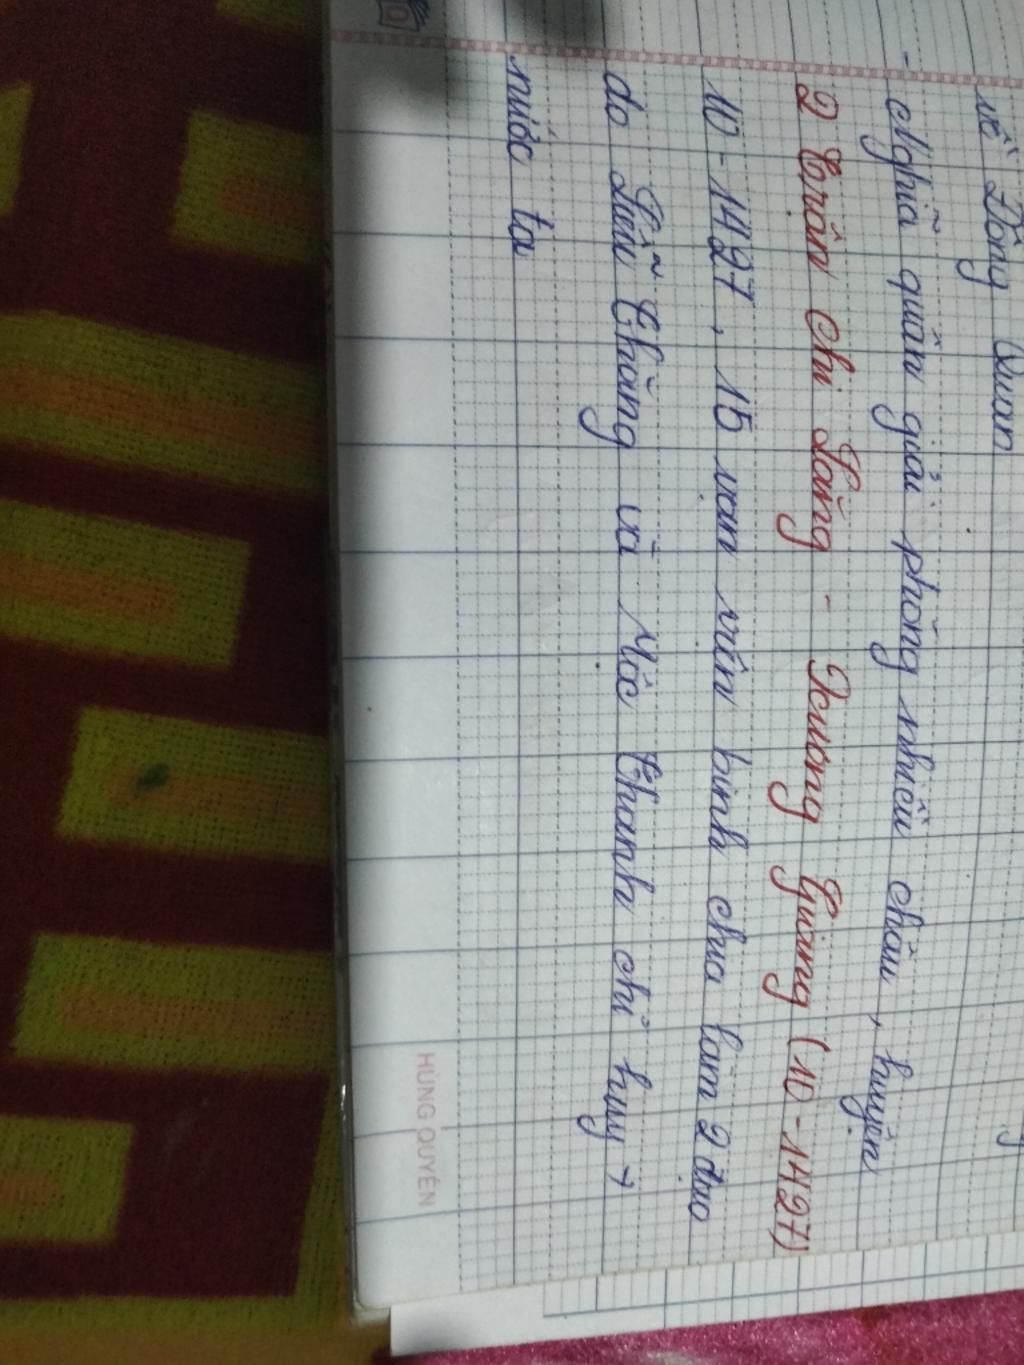 về Đông Quan
- Nghĩa quân giải phóng nhiều châu, huyện
2 Trận Chi Lăng - Xương Giang (10-1427)
10-1427, 15 vạn viện binh chia làm 2 đạo
do Liễu Thăng và Mộc Thạnh chỉ huy →
nước ta
HÙNG QUYÊN